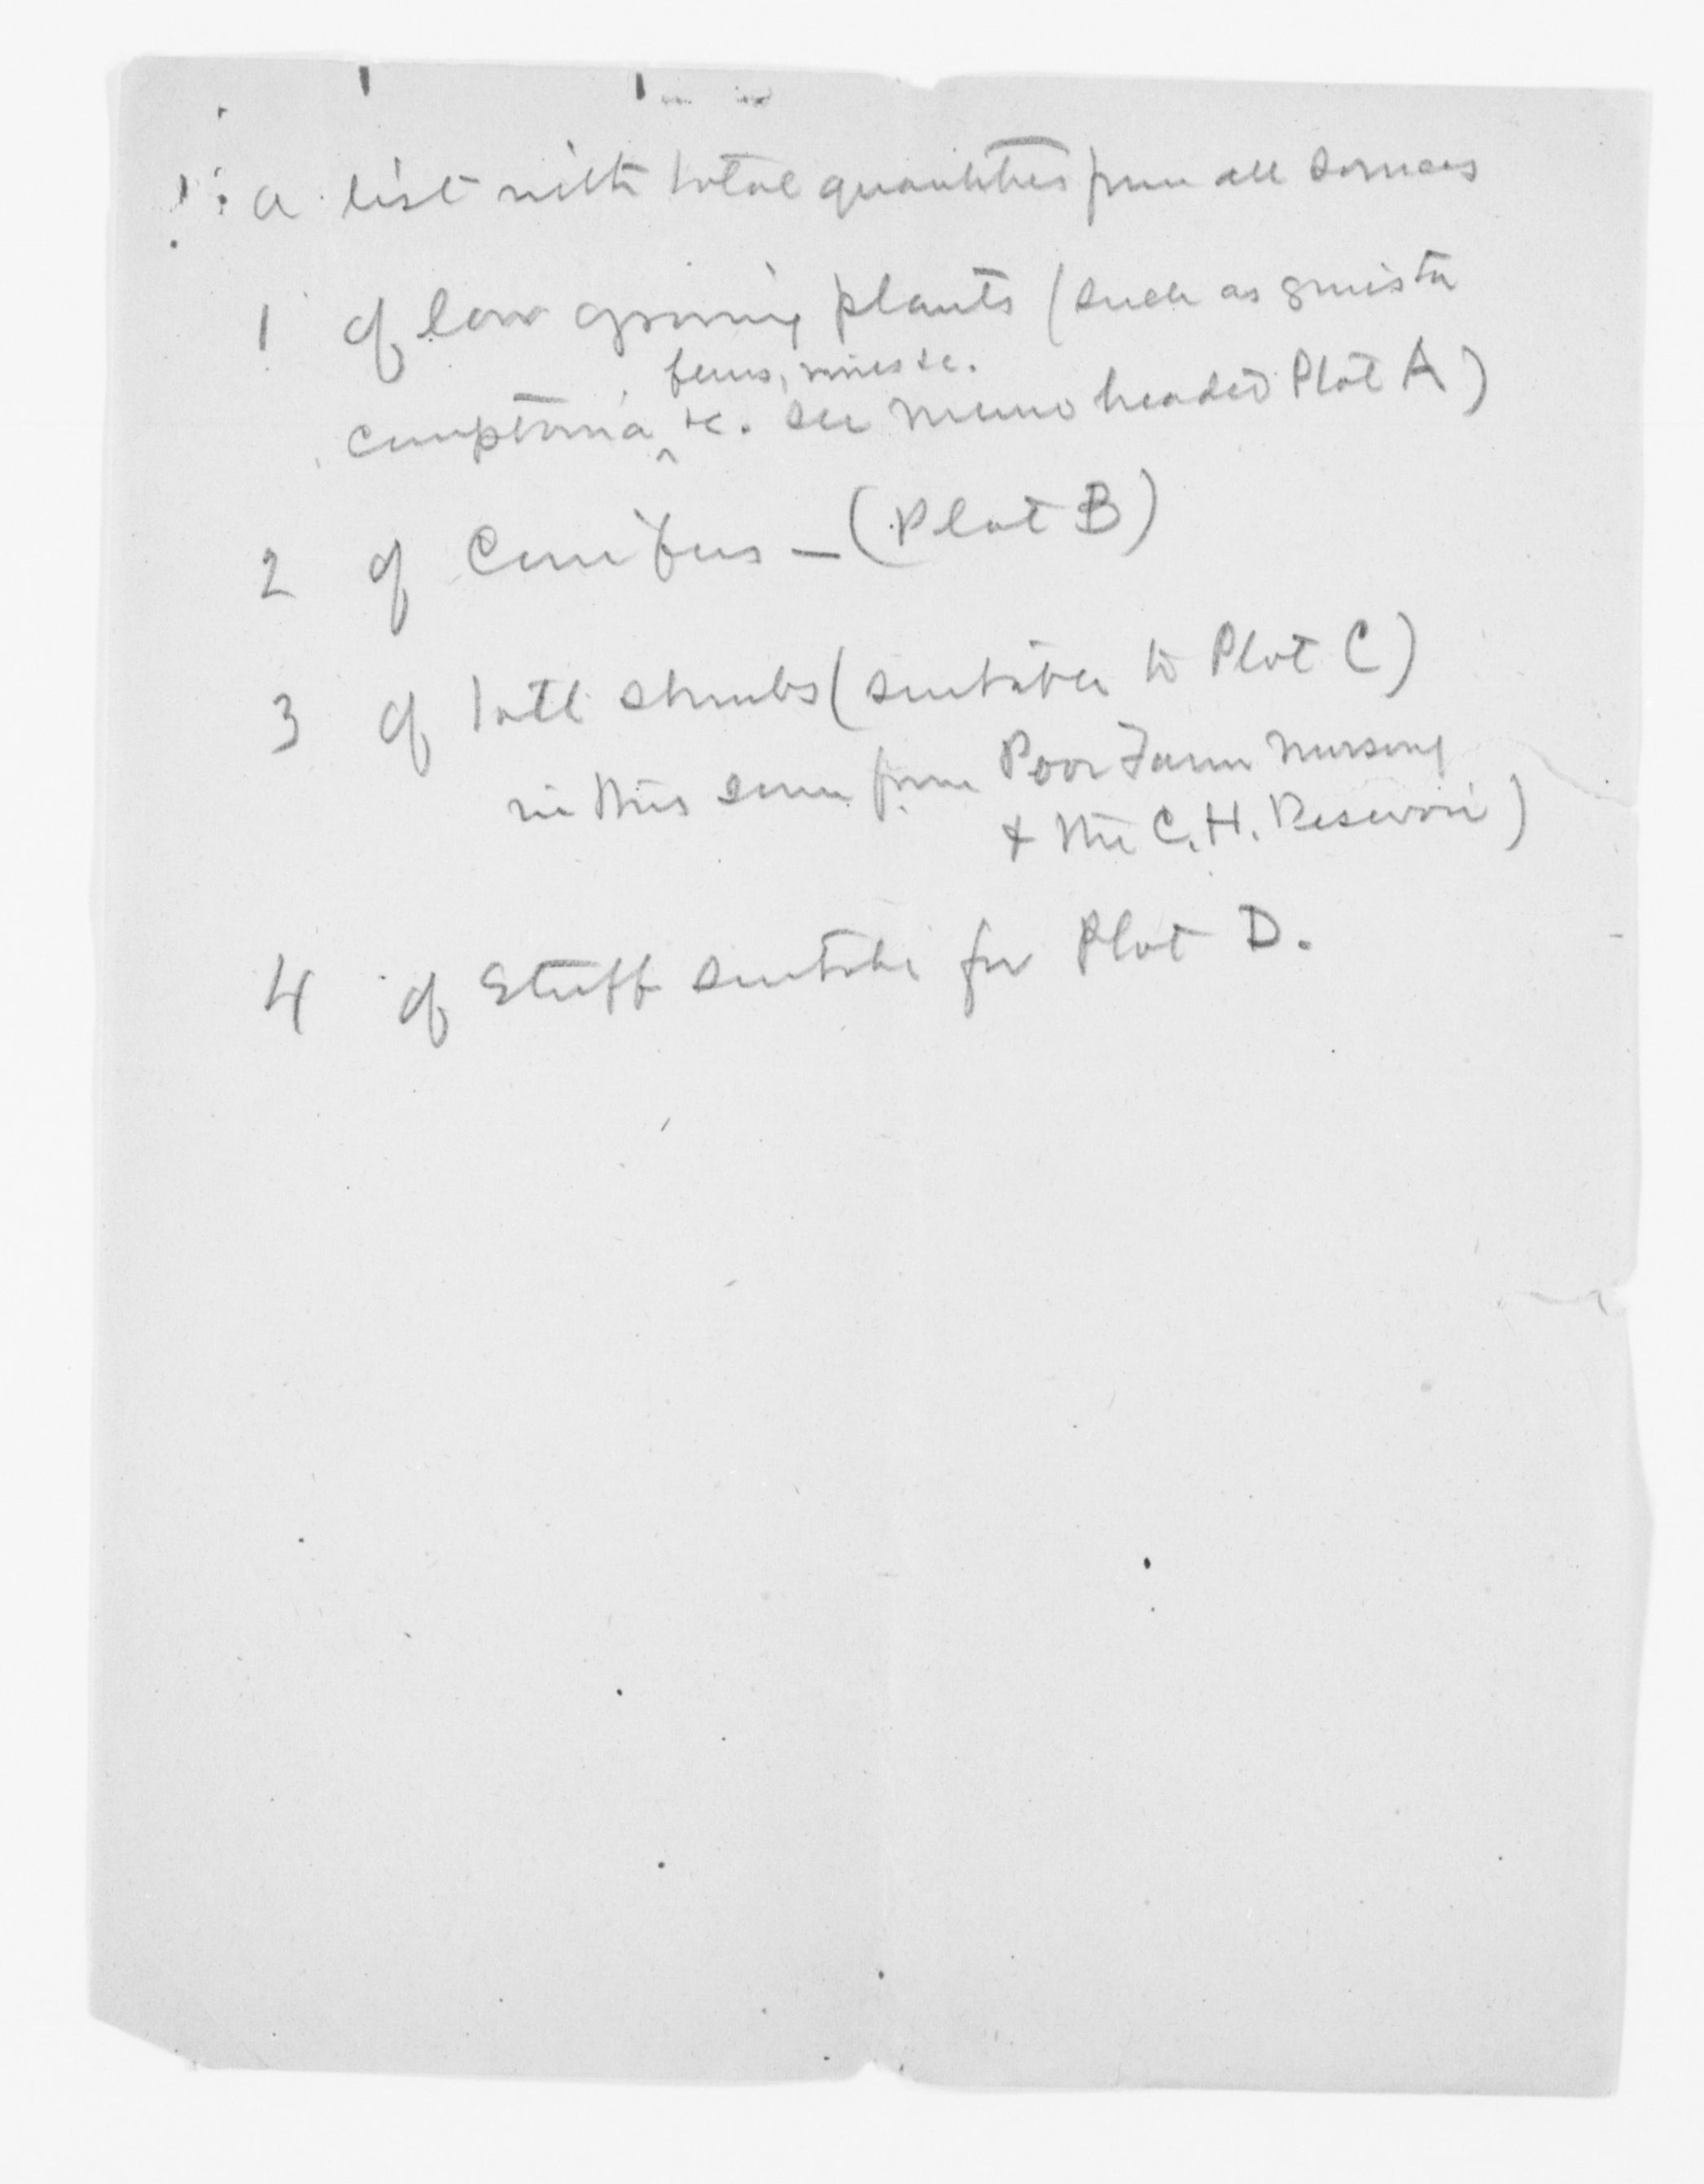 a list with total quantities from all sources
1 of low growing plants (such as genista
ferns, vines &c.
comptonia &c. see memo headed Plot A)
2 of Conifers — (Plot B)
3 of tall shrubs (suitable to Plot C)
in this some from Poor Farm Nursery
& the C. H. Resevoir)
4 of Stuff suitable for Plot D.